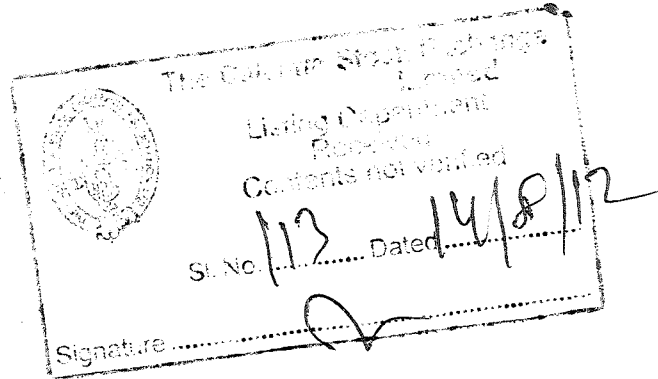 The Calcutta Stock Exchange
Limited
Listing Department
Received
Contents not verified
Sl. No. 113 Dated 14/8/12
Signature